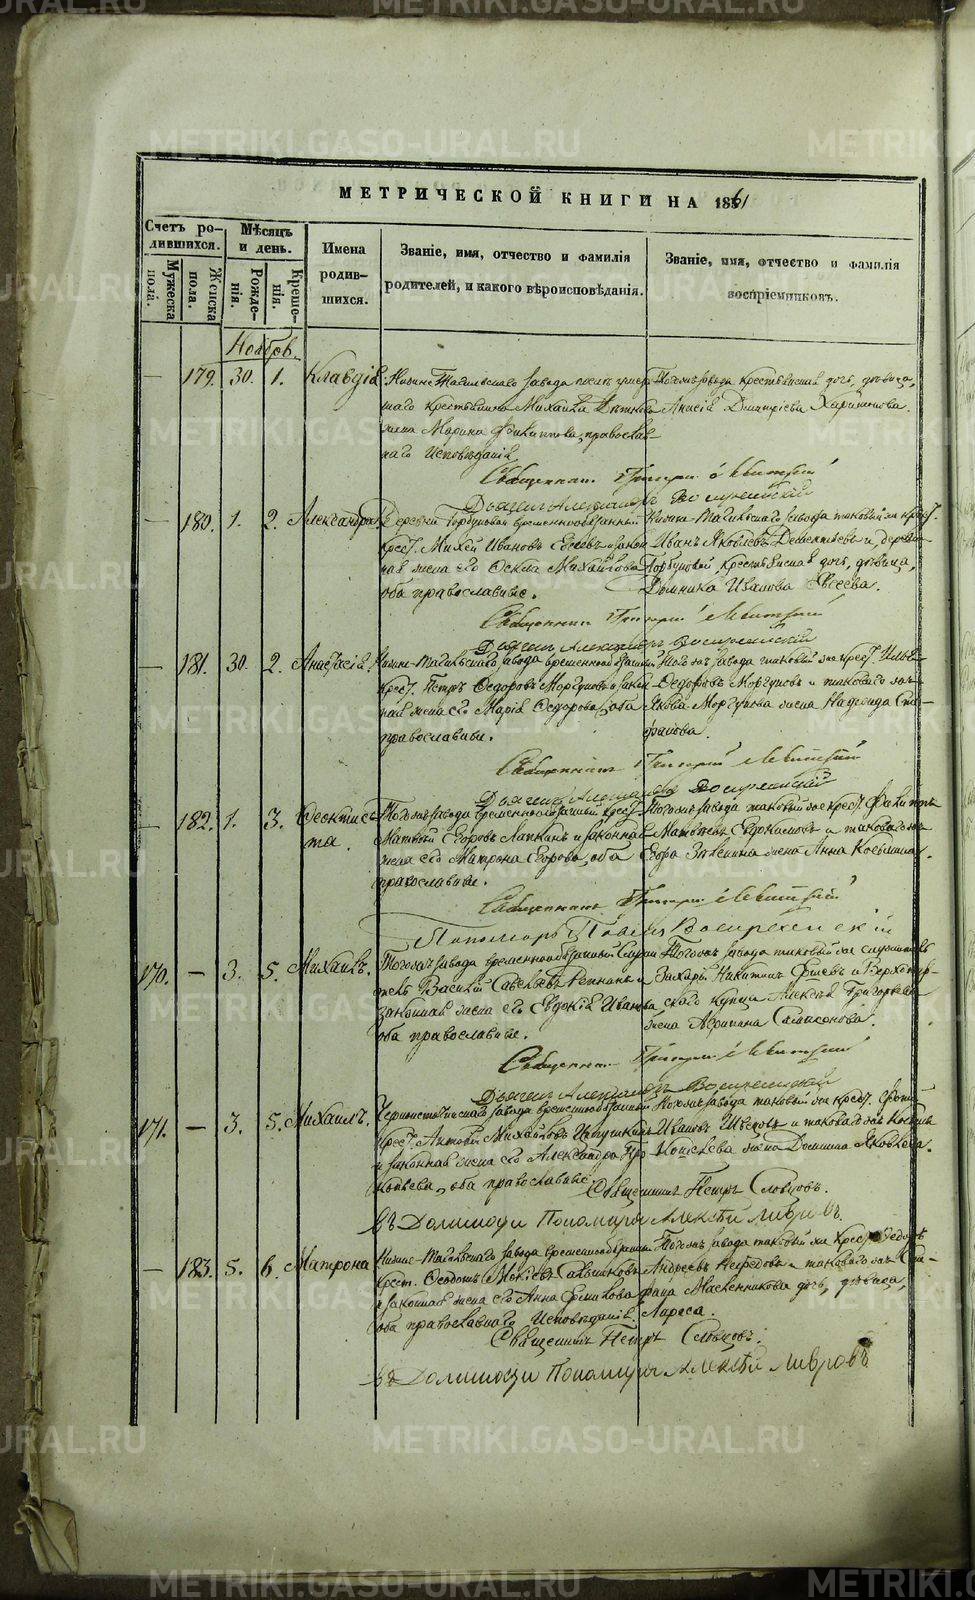 METRIKI.GASO-URAL.RU
МЕТРИЧЕСКОЙ КНИГИ НА 1861
Счетъ ро-
дившихся.
Мужеска
пола.
Женска
пола.
Мѣсяцъ
и день.
Рожде-
нія.
Креще-
нія.
Имена
родив-
шихся.
Званіе, имя, отчество и фамилія
родителей, и какого вѣроисповѣданія.
Званіе, имя, отчество и фамилія
воспріемниковъ.
Ноябрь.
— 179. 30. 1. Клавдія
Нижне-Тагильскаго завода послѣ умер-
шаго крестьянина Михаила
жена Марина Филиппова, православ-
наго Исповѣданія
Тогожъ завода крестьянская дочь, дѣвица,
Анисія Дмитріева Харитонова.
Священникъ Григорій Левитскій
Дьяконъ Александръ Воскресенскій
— 180. 1. 2. Александра.
Деревни Горбуновой временнообязанный
крест. Михей Ивановъ Евсеевъ и закон-
ная жена его Фекла Михайлова
оба православные.
Нижне-Тагильскаго завода таковый же крест.
Иванъ Яковлевъ Дементьевъ и деревни
Горбуновой, крестьянская дочь, дѣвица,
Домника Иванова Евсеева.
Священникъ Григорій Левитскій
Дьяконъ Александръ Воскресенскій
— 181. 30. 2. Анастасія.
Нижне-Тагильскаго завода временнообязанный
крест. Петръ Ѳедоровъ Моргуновъ и закон-
ная жена его Марія Ѳедорова, оба
православные.
Тогожъ завода таковый же крест. Илья
Ѳедоровъ Моргуновъ и таковаго же
Якова Моргунова жена Надежда Сте-
фанова.
Священникъ Григорій Левитскій
Дьяконъ Александръ Воскресенскій
— 182. 1. 3. Ѳеоктис-
та.
Тогожъ завода временнообязанный крест.
Матвѣй Егоровъ Лапкинъ и законная
жена его Матрона Егорова, оба
православные.
Тогожъ завода таковый же крест. Филиппъ
Матвѣевъ Евдокимовъ и таковаго же
Егора жена Анна Косьмина.
Священникъ Григорій Левитскій
Пономарь Павелъ Воскресенскій
170. — 3. 5. Михаилъ.
Тогожъ завода временнообязанный
Василій Савельевъ и
законная жена его Евдокія Иванова
оба православные.
Тогожъ завода таковый же служитель
Захаръ Никитинъ и Верхотур-
скаго купца Алексѣя Григорьева
жена Агрипина Самсонова.
Священникъ Григорій Левитскій
Дьяконъ Александръ Воскресенскій
171. — 3. 5. Михаилъ.
Черноисточинскаго завода временнообязанный
крест. Антонъ Михайловъ
и законная жена его Александра Про-
копьева, оба православные.
Тогожъ завода таковый же крест.
Ивановъ Шведовъ и таковаго же
Кошелева жена Домнина Яковлева.
Священникъ Петръ Словцовъ.
Въ Должности Пономаря Алексѣй Лавровъ.
— 183. 5. 6. Матрона
Нижне-Тагильскаго завода временнообязанный
крест. Ѳедотъ Мокіевъ
и законная жена его Анна Ермилова
оба православнаго Исповѣданія.
Тогожъ завода таковый же крест. Ѳедоръ
Андреевъ Нефедовъ и таковаго же Сте-
фана Масленникова дочь, дѣвица,
Лариса.
Священникъ Петръ Словцовъ.
Въ Должности Пономаря Алексѣй Лавровъ